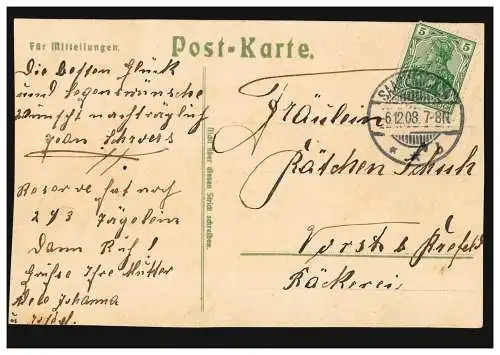 Für Mitteilungen.
Post-Karte.
Die besten Glück
und Segenswünsche
wünscht nachträglich
Jean Schroers
Reserve hat noch
2 43 Tägelein
Dann Ruh!
Grüße Ihre Mutter
Johanna
u
Nicht über diesen Strich schreiben.
5 5
6.12.08. 7-8N
b
Fräulein
Kätchen Schuh
Vorst b Krefeld
Bäckerei